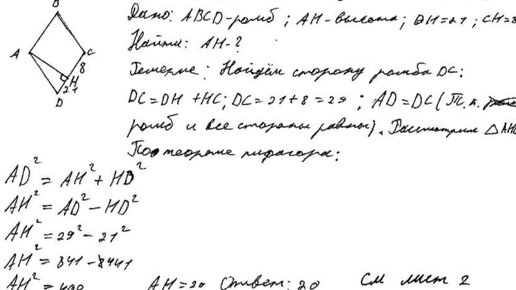 B
Дано: ABCD-ромб; AH-высота; DH=21; CH=8
Найти: AH-?
A
C
H
8
21
D
Решение: Найдём сторону ромба DC:
DC=DH+HC; DC=21+8=29; AD=DC (т.к.
ромб и все стороны равны). Рассмотрим △AHD
По теореме пифагора:
AD²=AH²+HD²
AH²=AD²-HD²
AH²=29²-21²
AH²=841-8441
AH²=400
AH=20 Ответ: 20
См лист 2